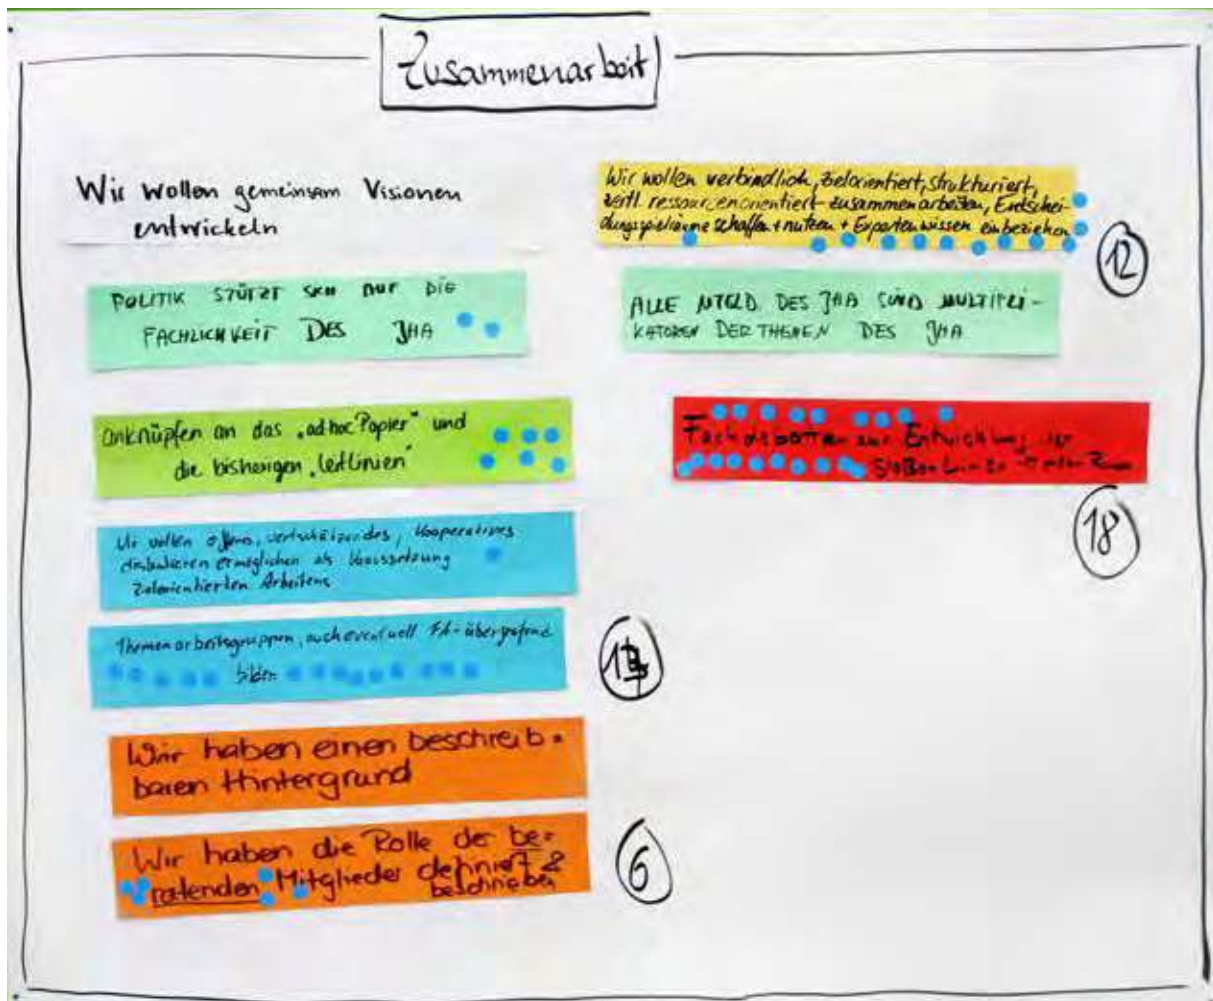 Zusammenarbeit
Wir wollen gemeinsam Visionen
entwickeln
POLITIK STÜTZT SICH AUF DIE
FACHLICHKEIT DES JHA
anknüpfen an das „ad hoc Papier" und
die bisherigen „Leitlinien"
Wir wollen offenes, wertschätzendes, kooperatives
diskutieren ermöglichen als Voraussetzung
zielorientierten Arbeitens
Themenarbeitsgruppen, auch eventuell FA-übergreifend
bilden
Wir haben einen beschreib-
baren Hintergrund
Wir haben die Rolle der be-
ratenden Mitglieder definiert &
beschrieben
6
Wir wollen verbindlich, zielorientiert, strukturiert,
ressourcenorientiert zusammenarbeiten, Entschei-
dungsspielräume schaffen + nutzen + Expertenwissen einbeziehen
12
ALLE MTGLD. DES JHA SIND MULTIPLI-
KATOREN DER THEMEN DES JHA
Fachdebatten zur Entwicklung der
großen Linien
18